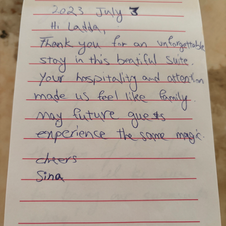 2023 July 3
Hi Ladda,
Thank you for an unforgettable
stay in this beutiful suite.
Your hospitality and atention
made us feel like family
may future guests
experience the same magic.
cheers
Sina